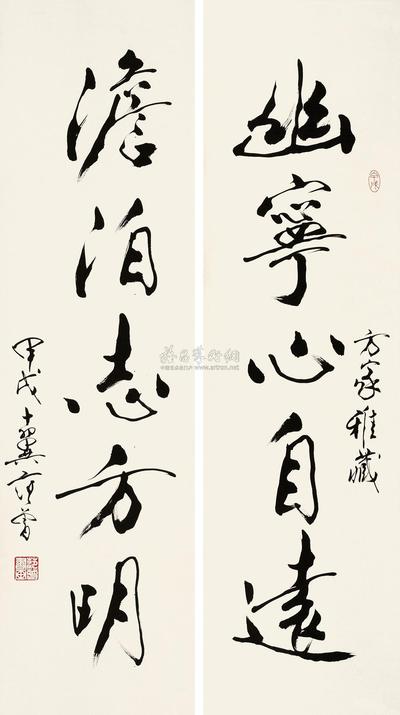 幽寧心自遠
方家雅藏
澹泊志方明
甲戌十翼范曾
www.artron.net